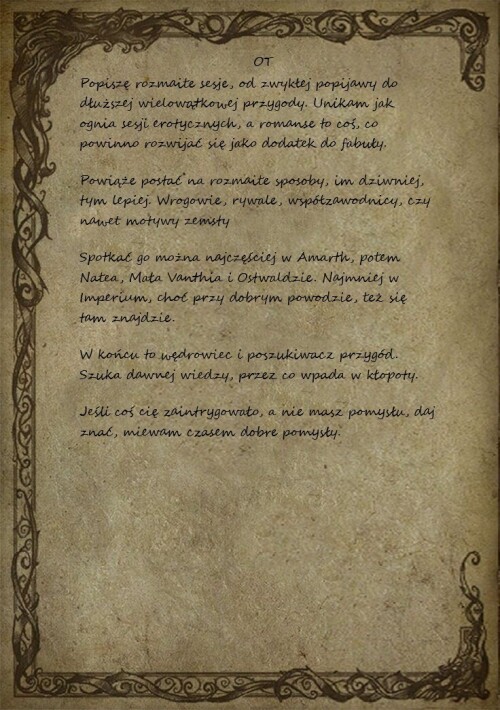 OT
Popiszę rozmaite sesje, od zwykłej popijawy do
dłuższej wielowątkowej przygody. Unikam jak
ognia sesji erotycznych, a romanse to coś, co
powinno rozwijać się jako dodatek do fabuły.
Powiążę postać na rozmaite sposoby, im dziwniej,
tym lepiej. Wrogowie, rywale, współzawodnicy, czy
nawet motywy zemsty
Spotkać go można najczęściej w Amarth, potem
Natea, Mała Vanthia i Ostwaldzie. Najmniej w
Imperium, choć przy dobrym powodzie, też się
tam znajdzie.
W końcu to wędrowiec i poszukiwacz przygód.
Szuka dawnej wiedzy, przez co wpada w kłopoty.
Jeśli coś cię zaintrygowało, a nie masz pomysłu, daj
znać, miewam czasem dobre pomysły.